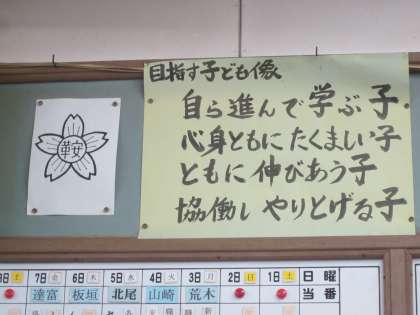 目指す子ども像
自ら進んで学ぶ子
心身ともにたくましい子
ともに伸びあう子
協働しやりとげる子
鞍
8日 土 7日 金 6日 木 5日 水 4日 火 3日 月 2日 日 1日 土 日 曜
達富 板垣 北尾 山崎 荒木 当番